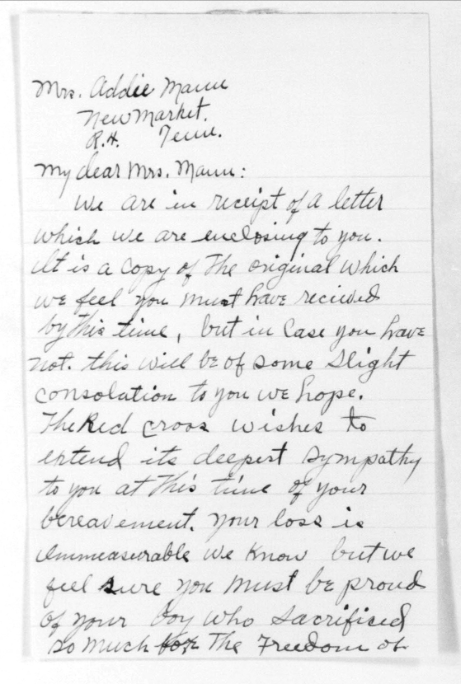 Mrs. Addie Mann
New Market.
R.4. Tenn.
My dear Mrs. Mann:
We are in receipt of a letter
which we are enclosing to you.
It is a copy of The original which
we feel you must have recieved
by this time, but in case you have
not. this will be of some slight
consolation to you we hope.
The Red cross wishes to
extend its deepest sympathy
to you at this time of your
bereavement. Your loss is
immeasurable we know but we
feel sure you must be proud
of your boy who sacrificed
so much for The Freedom of